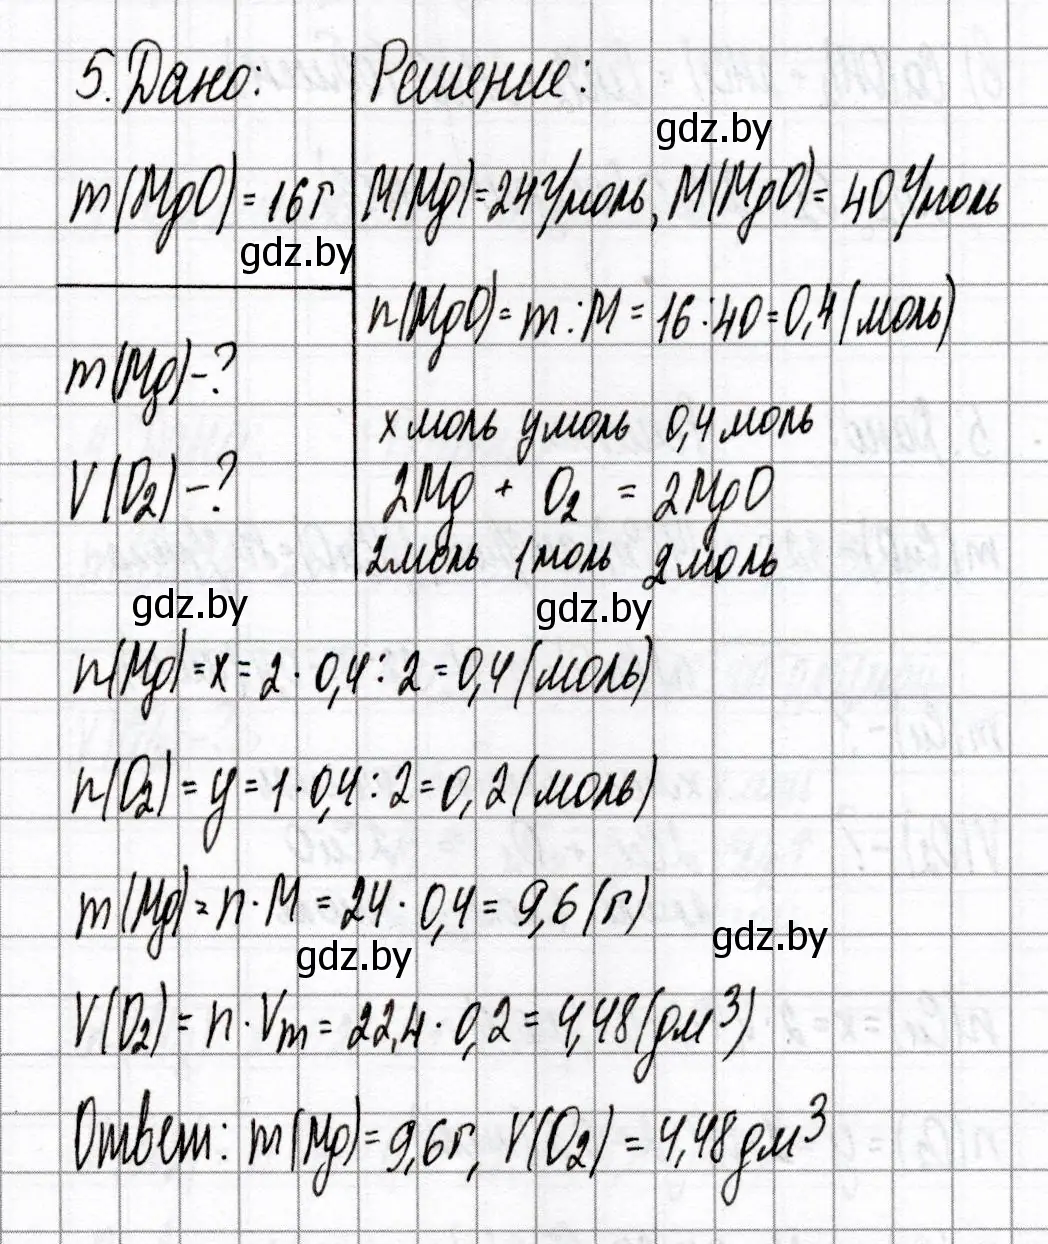 5. Дано:
m(MgO) = 16 г
m(Mg) - ?
V(O₂) - ?
Решение:
M(Mg) = 24 г/моль, M(MgO) = 40 г/моль
n(MgO) = m : M = 16 : 40 = 0,4 (моль)
x моль y моль 0,4 моль
2Mg + O₂ = 2MgO
2 моль 1 моль 2 моль
n(Mg) = x = 2 · 0,4 : 2 = 0,4 (моль)
n(O₂) = y = 1 · 0,4 : 2 = 0,2 (моль)
m(Mg) = n · M = 24 · 0,4 = 9,6 (г)
V(O₂) = n · Vm = 22,4 · 0,2 = 4,48 (дм³)
Ответ: m(Mg) = 9,6 г, V(O₂) = 4,48 дм³
gdz.by
gdz.by
gdz.by
gdz.by
gdz.by
gdz.by